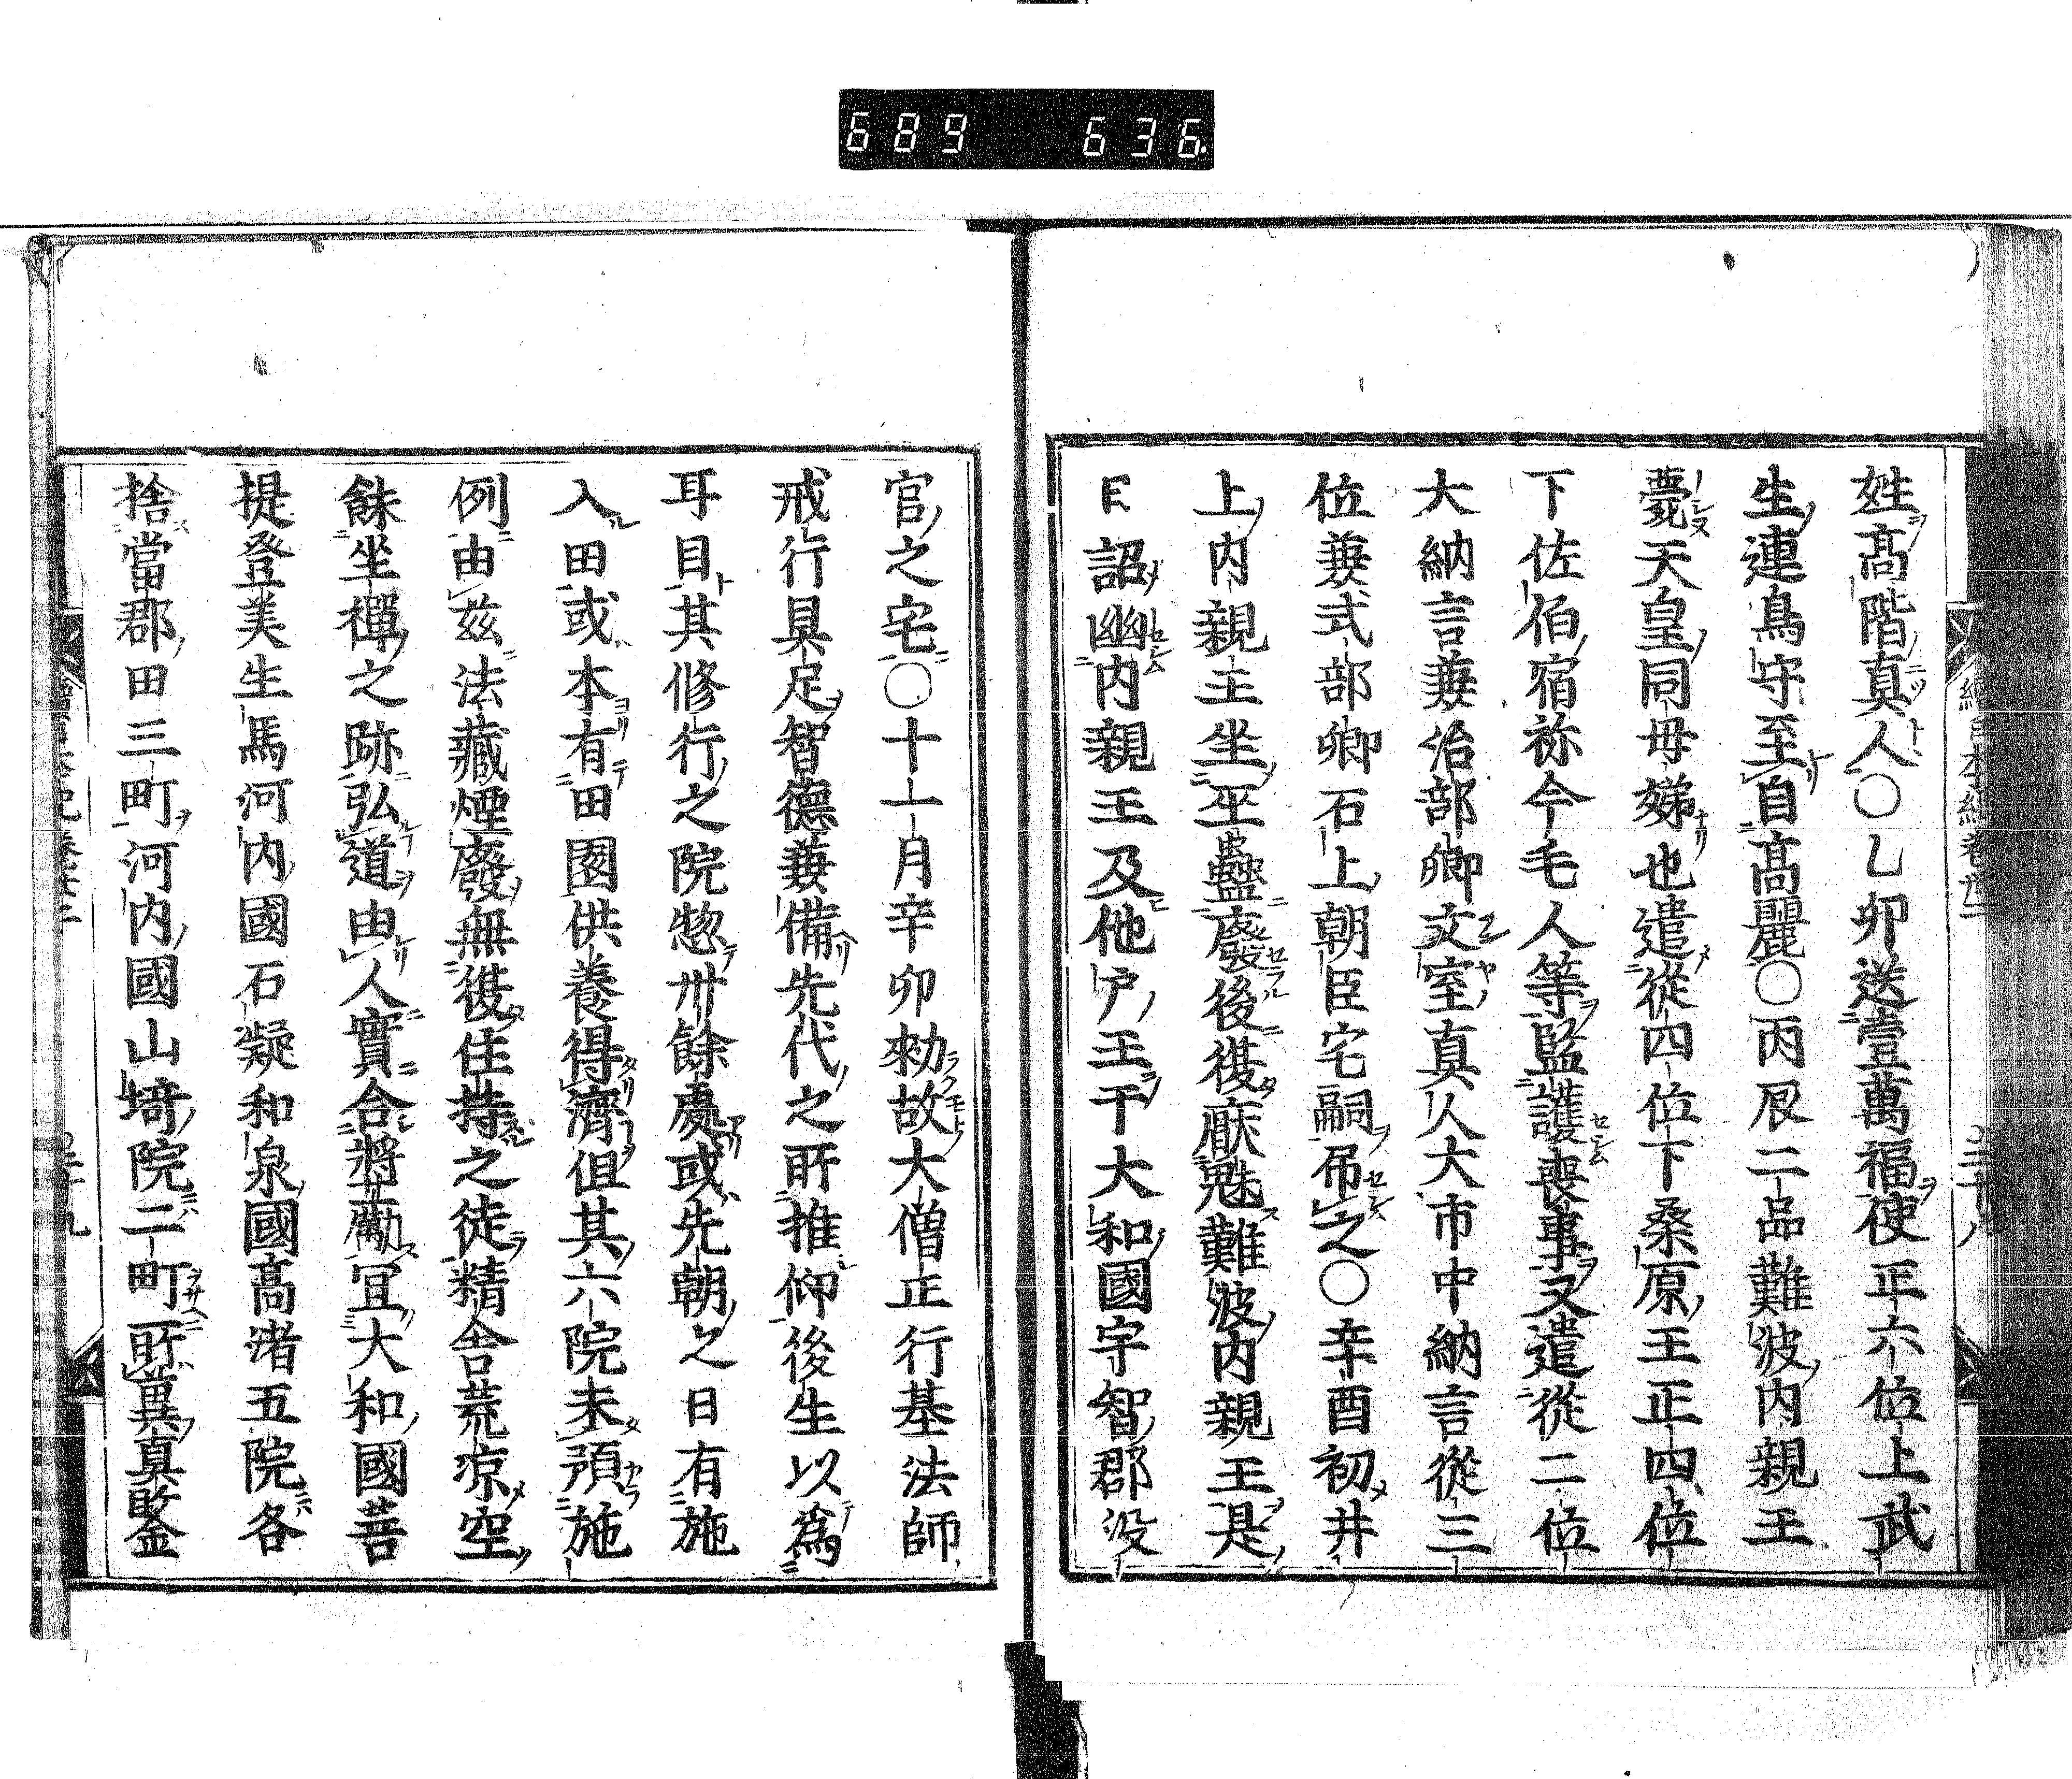 689 636.
姓髙階真人〇乙卯送壹萬福使正六位上武
生連鳥守至自髙麗〇丙辰二品難波内親王
薨天皇同母娣也遣從四位下桑原王正四位
下佐伯宿祢今毛人等監護喪事又遣從二位
大納言兼治部卿文室真人大市中納言從三
位兼式部卿石上朝臣宅嗣吊之〇辛酉初井
上内親王坐巫蠱廢後復厭魅難波内親王是
日詔幽内親王及他戸王于大和國宇智郡没
官之宅〇十一月辛卯勑故大僧正行基法師
戒行具足智德兼備先代之所推仰後生以為
耳目其修行之院惣卌餘處或先朝之日有施
入田或本有田園供養得濟但其六院未預施
例由兹法藏煙廢無復住持之徒精舎荒凉空
餘坐禪之跡弘道由人實合奬勵宜大和國菩
提登美生馬河内國石凝和泉國髙渚五院各
捨當郡田三町河内國山埼院二町所冀真筌